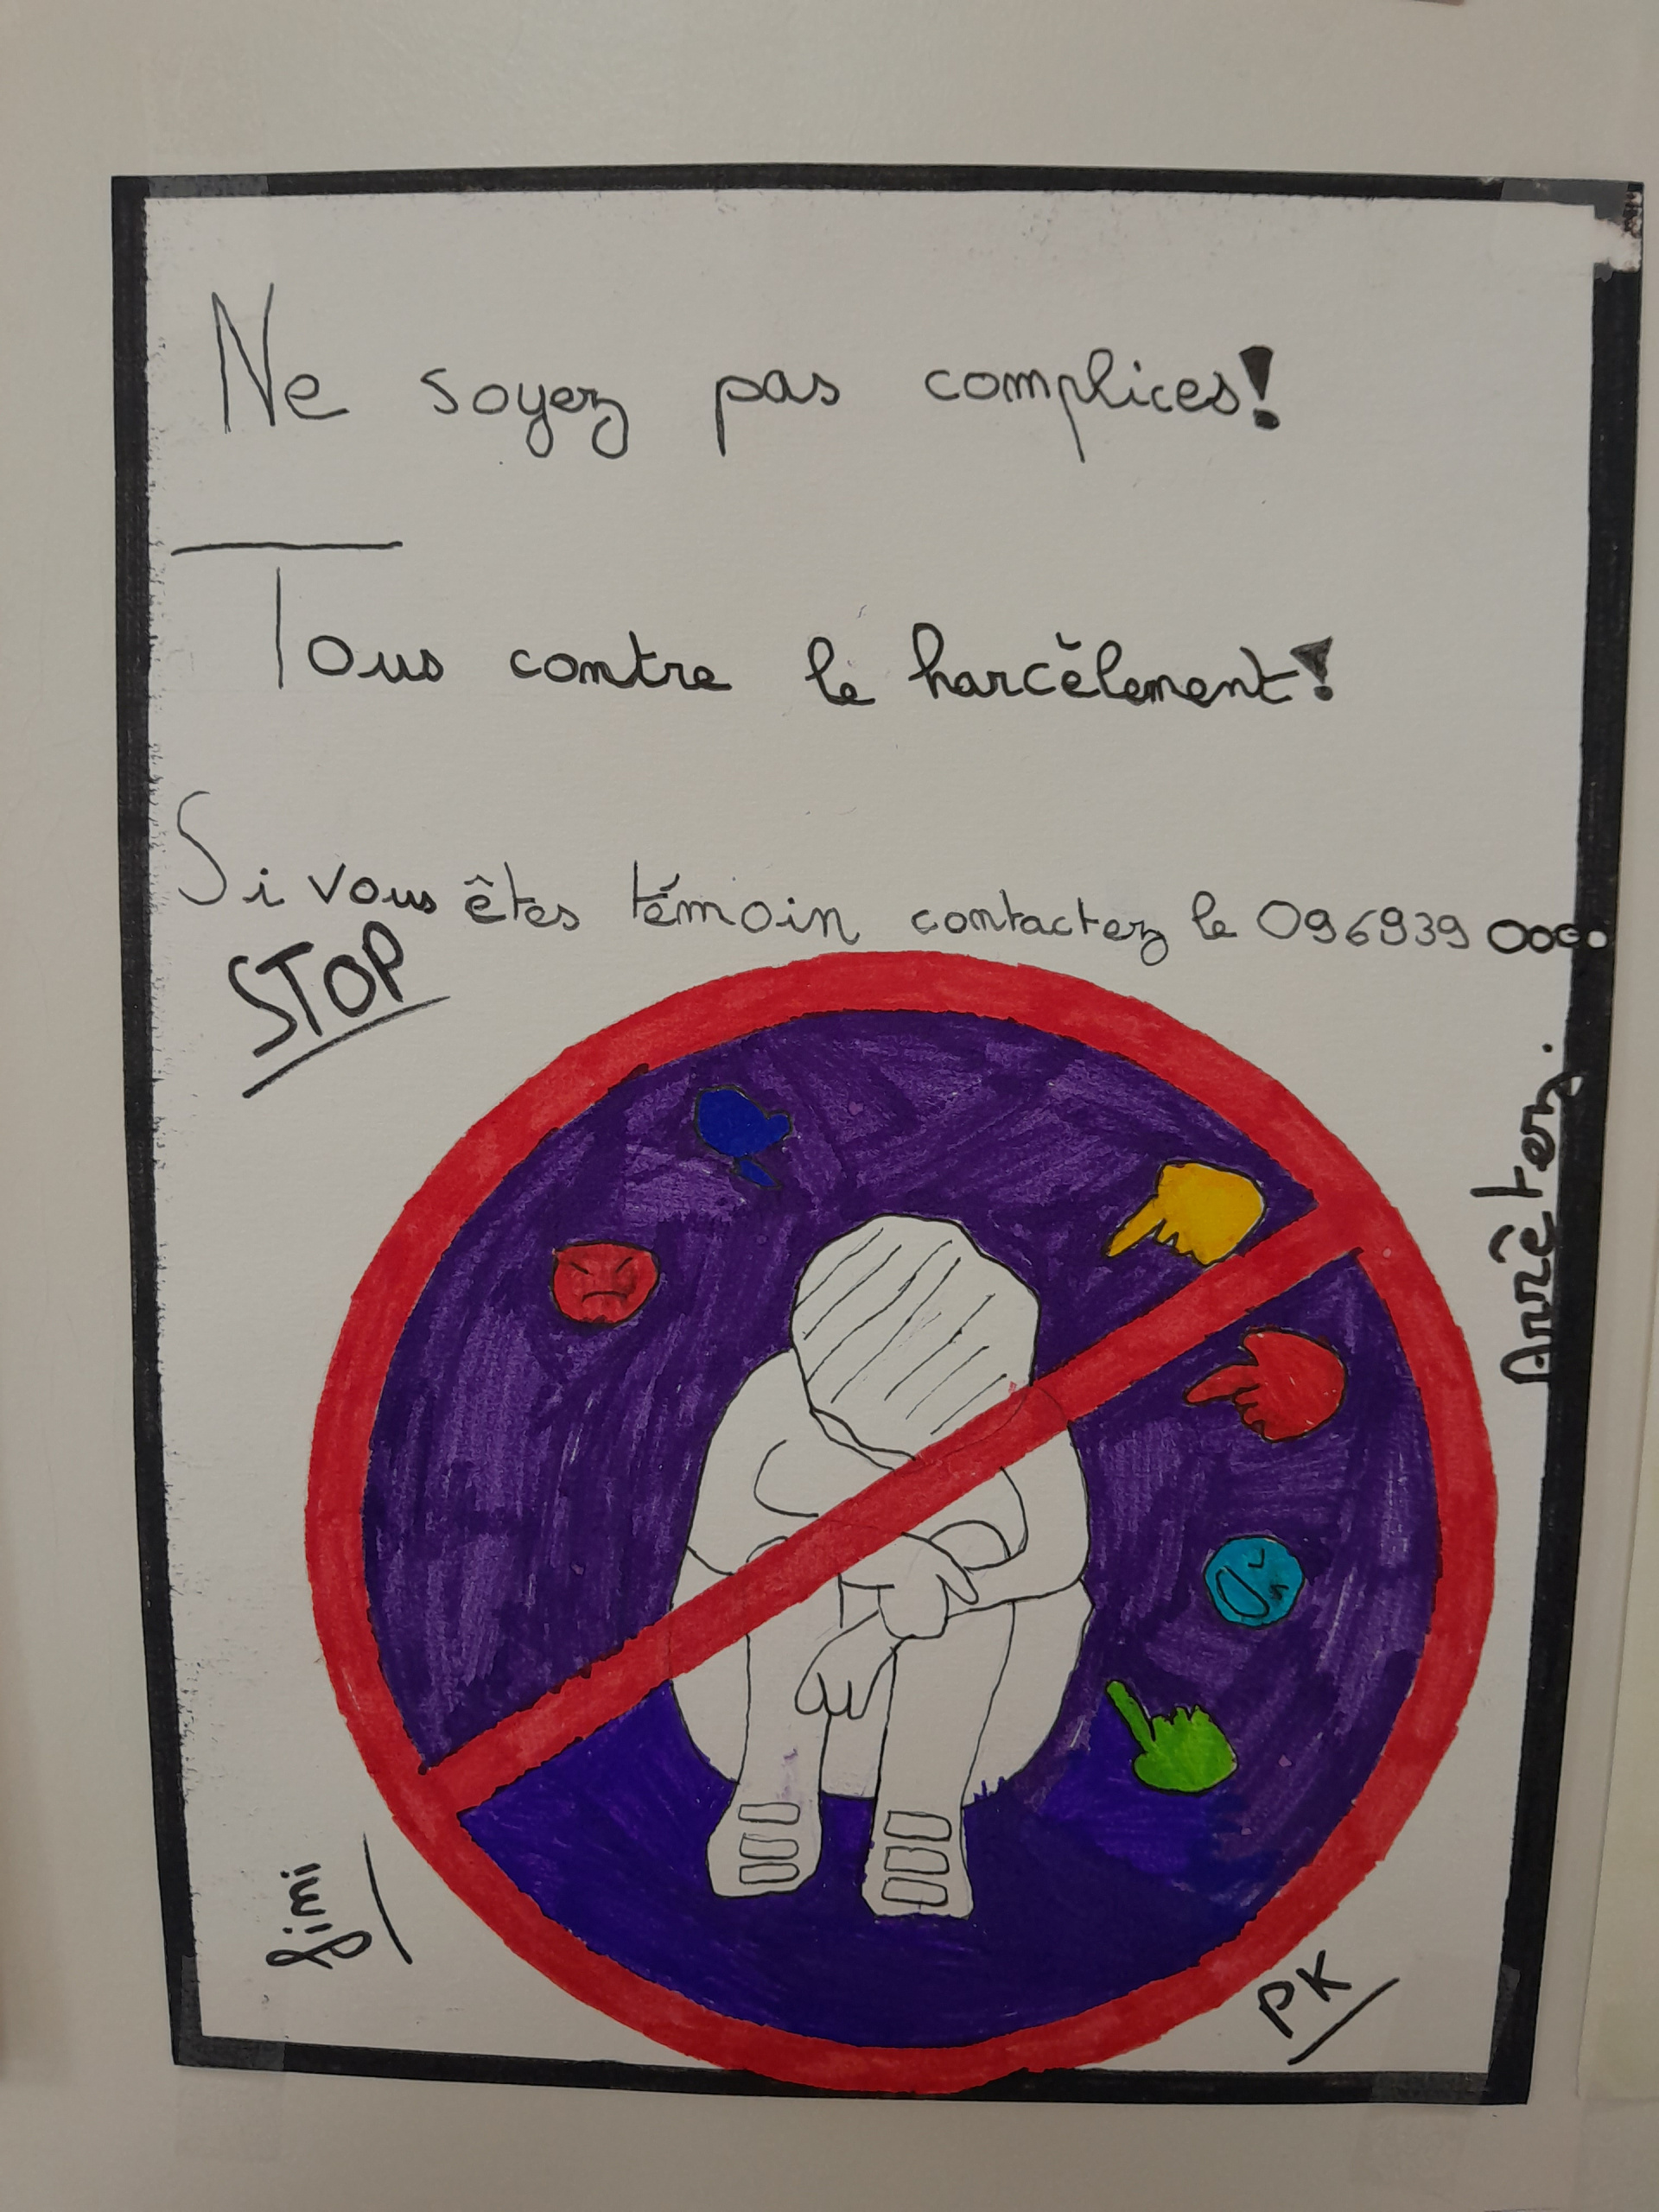 Ne soyez pas complices!
Tous contre le harcèlement!
Si vous êtes témoin contactez le 096939 0000
STOP
Arrêtez.
fimi
PK